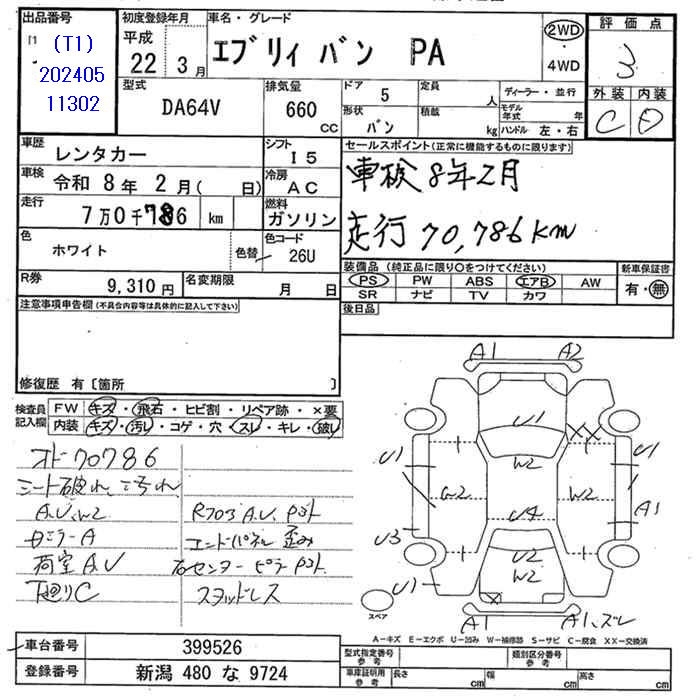 出品番号
(T1)
202405
11302
初度登録年月
平成
22 3月
車名・グレード
エブリィ バン PA
2WD
・
4WD
評価点
3
外装 内装
C D
型式
DA64V
排気量
660
cc
ドア 5
形状 バン
定員 人
積載 kg
ディーラー・並行
モデル年式 年
ハンドル 左・右
車歴 レンタカー
シフト I5
車検 令和 8年 2月( 日)
冷房 AC
走行 7万0千786 km
燃料 ガソリン
色 ホワイト
色替
色コード 26U
R券 9,310円
名変期限 月 日
セールスポイント(正常に機能するものに限ります)
車検 8年2月
走行 70,786km
装備品(純正品に限り○をつけてください)
PS PW ABS エアB AW
SR ナビ TV カワ
新車保証書
有・無
後日品
注意事項申告欄(不具合内容等は具体的に記入して下さい)
修復歴 有〔箇所 〕
検査員記入欄
FW キズ・飛石・ヒビ割・リペア跡・×要
内装 キズ・汚レ・コゲ・穴・スレ・キレ・破レ
オド70786
シート破れ、汚れ
A.U.W2
R703 A.U. P.ント
ミラーA
エンドパネル歪み
荷室A.U
右センターピラー
下廻りC
スタッドレス
A1 A2
U1
XX
U1 W2
W2 W2
A1
U4
U3
U2
W2
U1
X
スペア
A1 A1、ズレ
A−キズ E−エクボ U−凹み W−補修跡 S−サビ C−腐食 XX−交換済
車台番号 399526
登録番号 新潟 480 な 9724
型式指定番号 参考
類別区分番号 参考
車庫証明用 参考 長さ cm 幅 cm 高さ cm